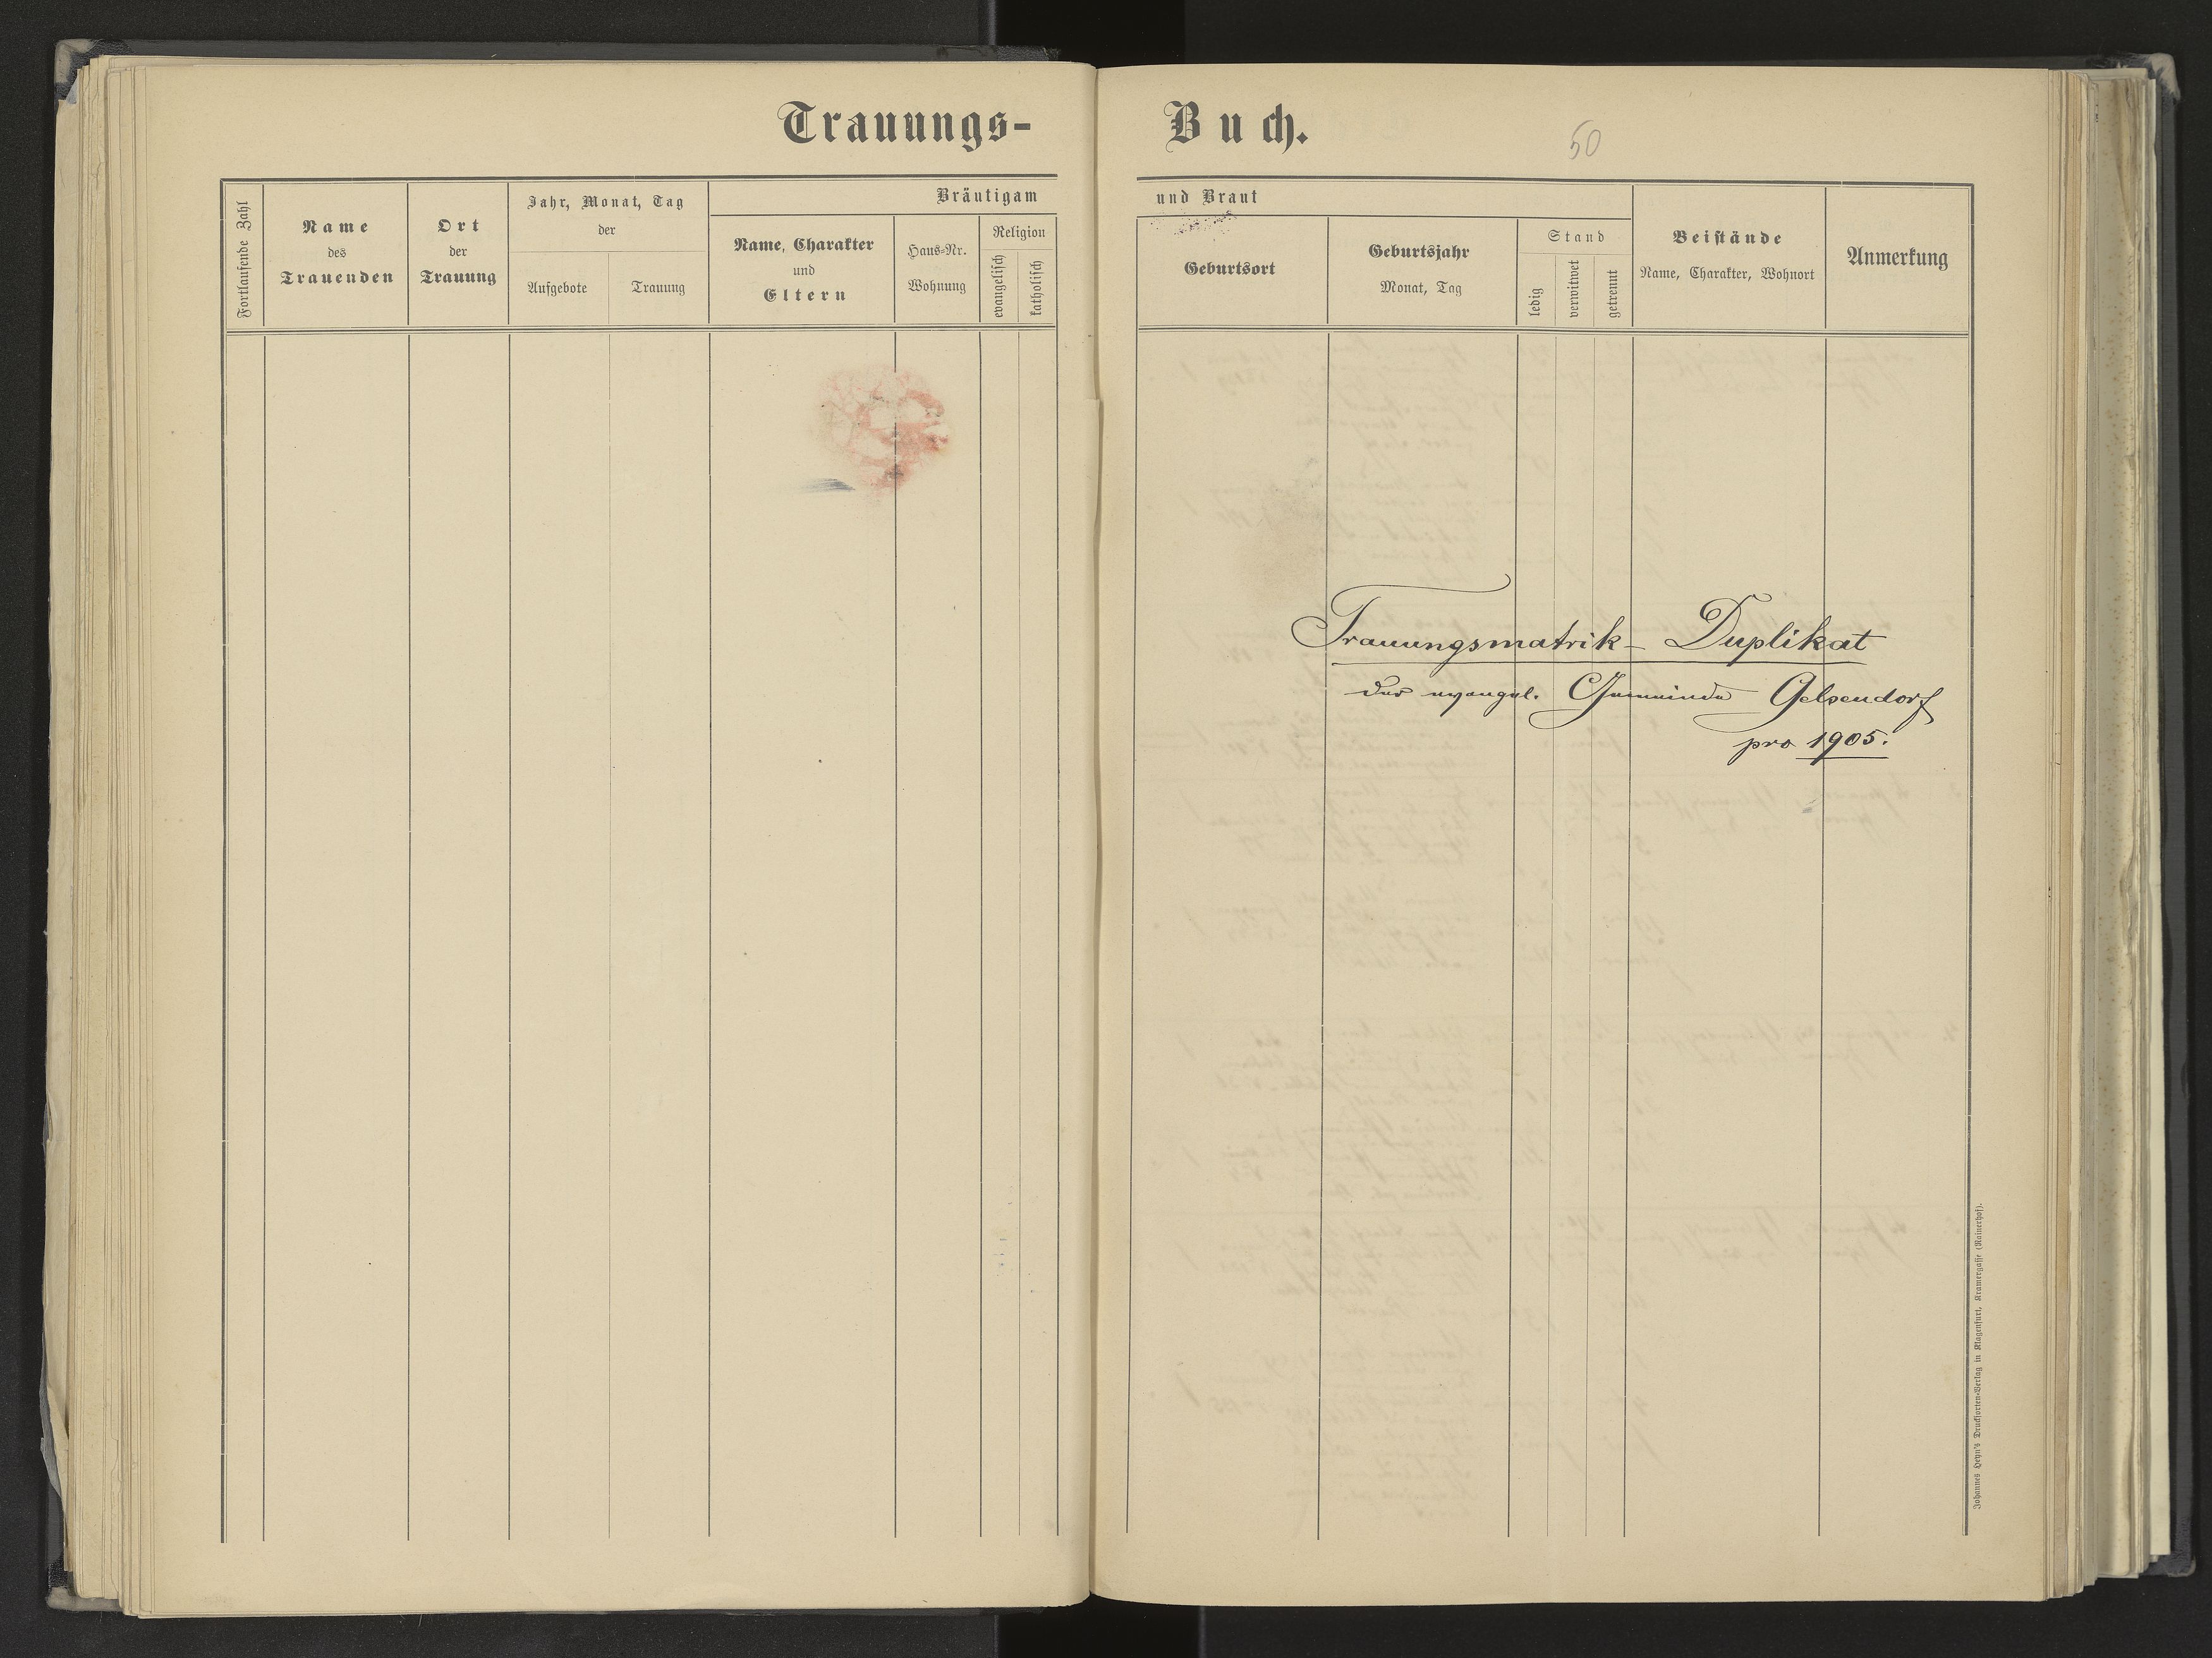 Trauungs-
Buch.
50
Fortlaufende Zahl
Name
des
Trauenden
Ort
der
Trauung
Jahr, Monat, Tag
der
Aufgebote
Trauung
Bräutigam
Name, Charakter
und
Eltern
Haus-Nr.
Wohnung
Religion
evangelisch
katholisch
und Braut
Geburtsort
Geburtsjahr
Monat, Tag
Stand
ledig
verwitwet
getrennt
Beistände
Name, Charakter, Wohnort
Anmerkung
Trauungsmatrik- Duplikat
der evangel. Gemeinde Gelsendorf
pro 1905.
Johannes Heyn's Drucksorten-Verlag in Klagenfurt, Kramergasse (Rainerhof).